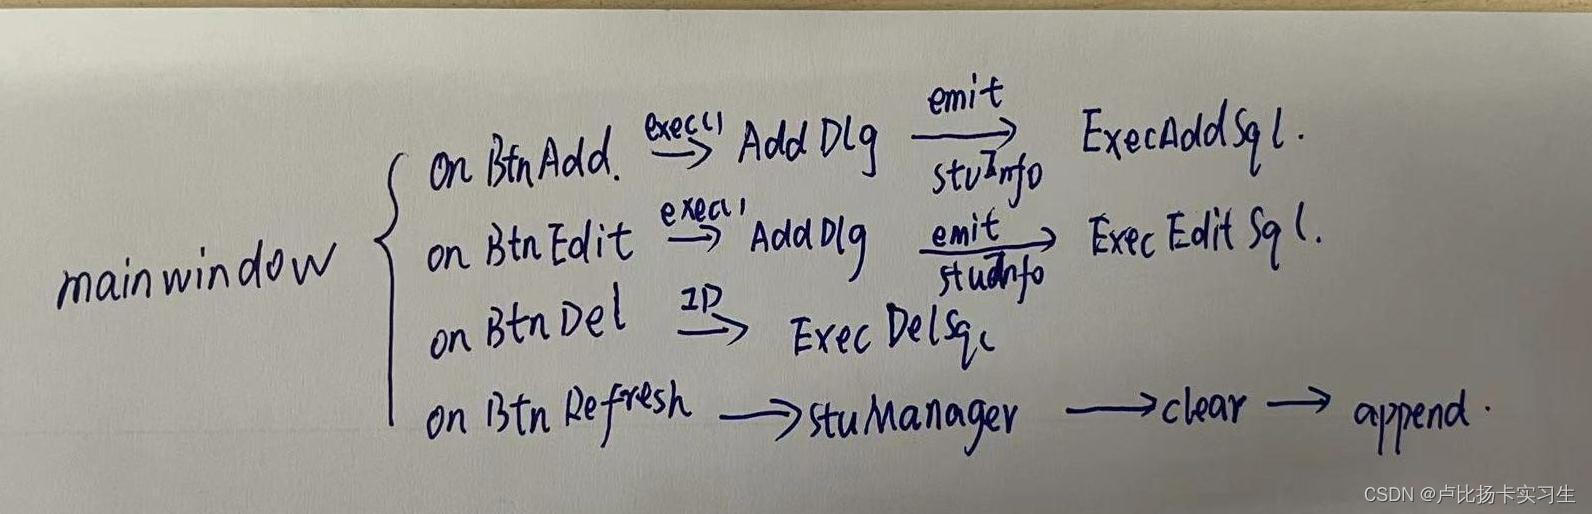 on BtnAdd. exec() AddDlg emit stuInfo ExecAddSql.
on BtnEdit exec() AddDlg emit stuInfo ExecEditSql.
mainwindow
on BtnDel ID ExecDelSql
on BtnRefresh stuManager clear append.
CSDN @卢比扬卡实习生